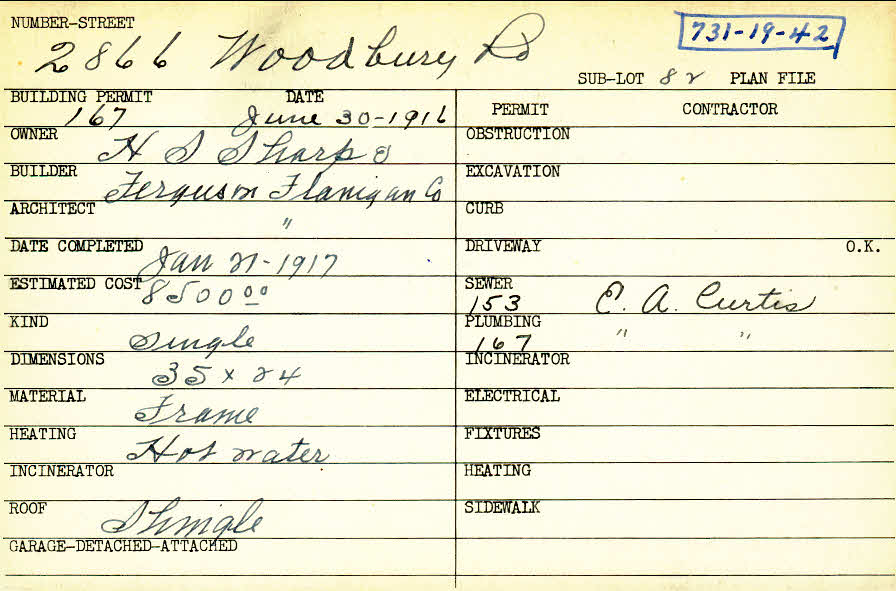 NUMBER-STREET
2866 Woodbury Rd
731-19-42
SUB-LOT 82 PLAN FILE
BUILDING PERMIT DATE
167 June 30-1916
OWNER H S Sharpe
BUILDER Ferguson Flanigan Co
ARCHITECT "
DATE COMPLETED Jan 21-1917
ESTIMATED COST 8500 00
KIND Single
DIMENSIONS 35 x 24
MATERIAL Frame
HEATING Hot water
INCINERATOR
ROOF Shingle
GARAGE-DETACHED-ATTACHED
PERMIT CONTRACTOR
OBSTRUCTION
EXCAVATION
CURB
DRIVEWAY O.K.
SEWER
153 E. A. Curtis
PLUMBING " "
167
INCINERATOR
ELECTRICAL
FIXTURES
HEATING
SIDEWALK